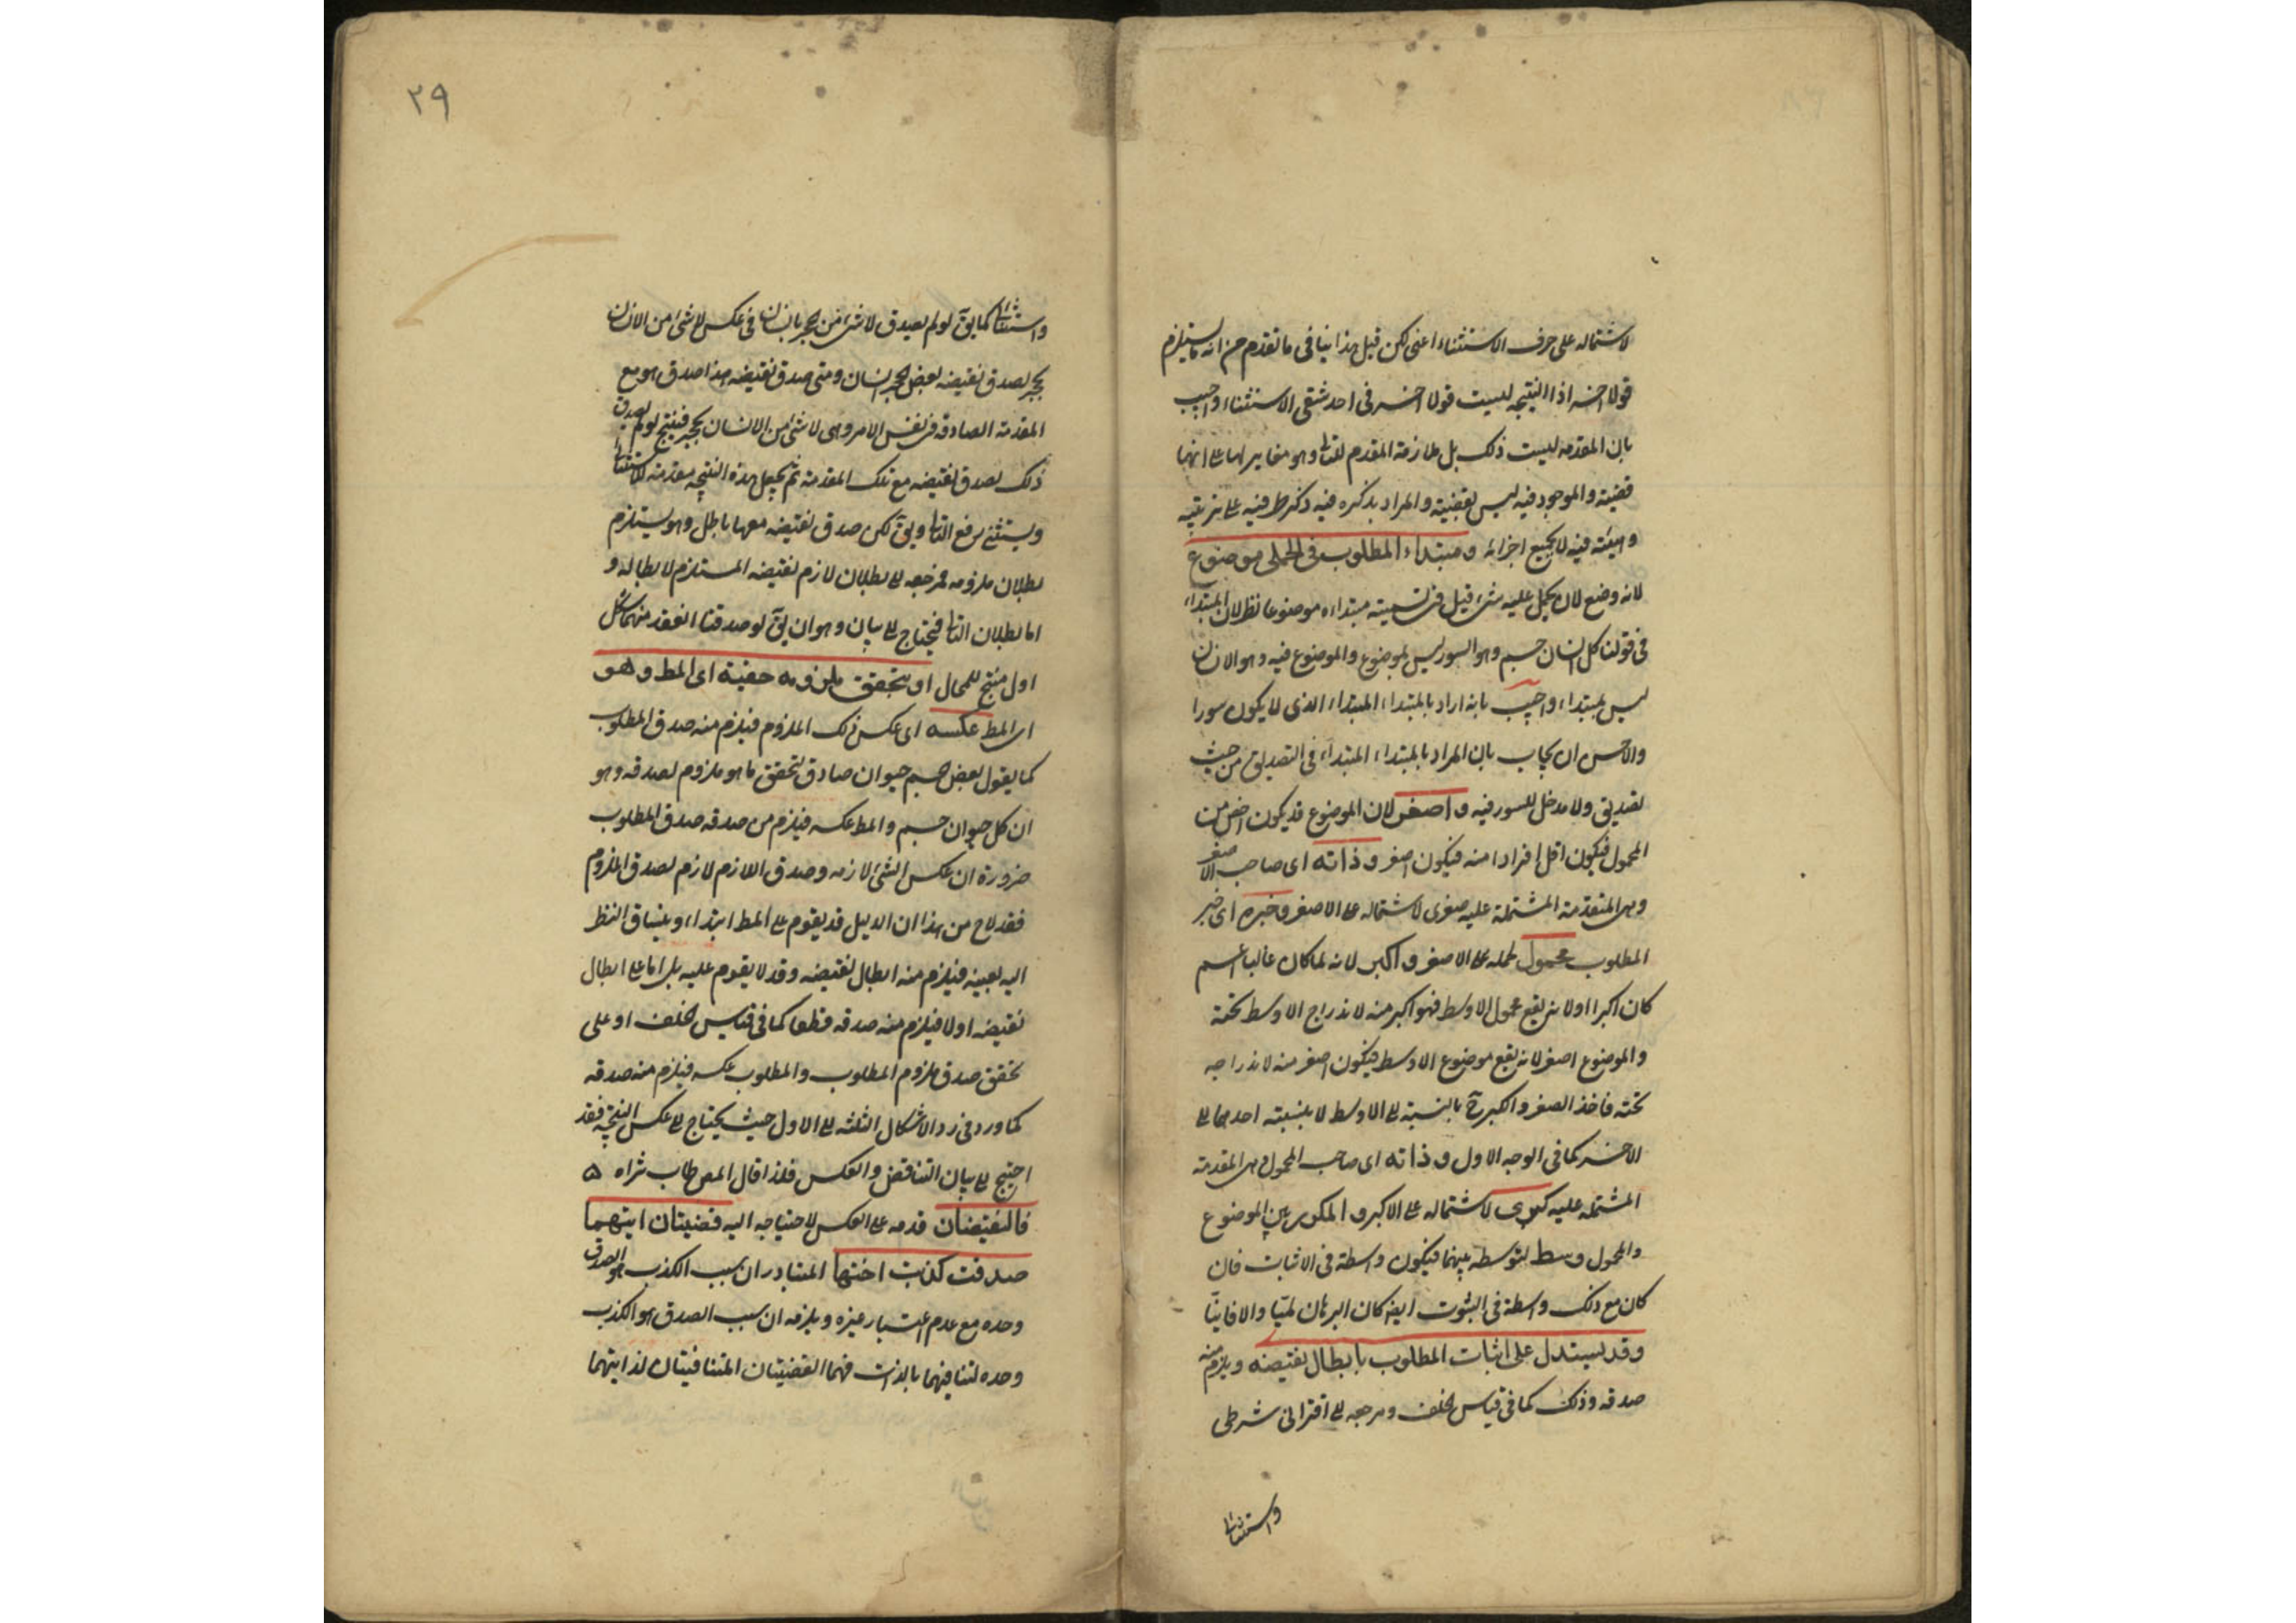 لاشتماله على حرف الاستثناء اعنى لكن قيل هذا ينافى ما تقدم من انه ما يستلزم
قولا اخر اذا النتيجه ليست قولا اخر فى احد شقى الاستثناء واجيب
بان المقدمه ليست ذلك بل ملازمة المقدم للتالى وهو مغاير لها على انهما
قضية والموجود فيه ليس بقضية والمراد بذكره فيه ذكر طرفيه على ترتيبه
وهيئته فيه لا بجميع اجزائه ومبتداء المطلوب فى الحملى موضوع
لانه وضع لان يحمل عليه شىء قيل فى تسميته مبتداءه موضوعا نظر لان المبتداء
فى قولنا كل انسان جسم وهو السور ليس بموضوع والموضوع فيه وهو الانسان
ليس بمبتداء واجيب بانه اراد بالمبتداء المبتداء الذى لا يكون سورا
والاحسن ان يجاب بان المراد بالمبتداء المبتداء فى التصديق من حيث
تصديق ولا مدخل للسور فيه واصغر لان الموضوع قد يكون اخص من
المحمول فيكون اقل افرادا منه فيكون اصغر وذاته اى صاحب الاصغر
وهى المتقدمة المشتملة عليه صغرى لاشتماله على الاصغر وخبره اى خبر
المطلوب محمول لحمله على الاصغر واكبر لانه لما كان غالبا اعم
كان اكبر او لانه يقع محمول الاوسط فهو اكبر منه لاندراج الاوسط تحته
والموضوع اصغر لانه يقع موضوع الاوسط فيكون اصغر منه لاندراجه
تحته فاخذ الصغر والكبر ح بالنسبة الى الاوسط لا بنسبته احدهما الى
الاخر كما فى الوجه الاول وذاته اى صاحب المحمول وهى المقدمة
المشتمله عليه كبرى لاشتماله على الاكبر والمكرر بين الموضوع
والمحمول وسط لتوسطه بينهما فيكون واسطة فى الاثبات فان
كان مع ذلك واسطة فى الثبوت ايضا كان البرهان لميا والا فانيا
وقد يستدل على اثبات المطلوب بابطال نقيضه ويلزم منه
صدقه وذلك كما فى قياس الخلف ومرجعه الى اقترانى شرطى
واستثنائى
٢٩
واستثنائى كما يق لو لم يصدق لا شىء من حجر بانسان فى عكس لا شىء من الانسان
بحجر لصدق نقيضه بعض الحجر انسان ومتى صدق نقيضه هذا صدق هو مع
المقدمة الصادقه فى نفس الامر وهى لا شىء من الانسان بحجر فينتج لو لم يصدق
ذلك لصدق نقيضه مع تلك المقدمة ثم يجعل هذه النتيجه مقدمة للاستثنائى
ويستثنى برفع التالى ويق لكن صدق نقيضه معها باطل وهو يستلزم
بطلان ملزومه فمرجعه الى بطلان لازم نقيضه المستلزم لابطاله و
اما بطلان التالى فيحتاج الى بيان وهو ان يق لو صدقتا انعقد منهما شكل
اول منتج للمحال او بتحقق ملزومه حقية اى المط وهو
اى المط عكسه اى عكس ذلك الملزوم فيلزم منه صدق المطلوب
كما يقول بعض جسم حيوان صادق لتحقق ما هو ملزوم لصدقه وهو
ان كل حيوان جسم والمط عكسه فيلزم من صدقه صدق المطلوب
ضرورة ان عكس الشىء لازمه وصدق اللازم لازم لصدق الملزوم
فقد لاح من هذا ان الدليل قد يقوم على المط ابتداء وينساق النظر
اليه بعينه فيلزم منه ابطال نقيضه وقد لا يقوم عليه بل اما على ابطال
نقيضه اولا فيلزم منه صدقه قطعا كما فى قياس الخلف او على
تحقق صدق ملزوم المطلوب والمطلوب عكسه فيلزم منه صدقه
كما ورد فى رد الاشكال الثلثه الى الاول حيث يحتاج الى عكس النتيجه فقد
احتيج الى بيان التناقض والعكس فلذا قال المص طاب ثراه ه
فالنقيضان قدمه على العكس لاحتياجه اليه قضيتان ايتهما
صدقت كذبت اختها المتبادر ان سبب الكذب هو الصدق
وحده مع عدم اعتبار غيره ويلزمه ان سبب الصدق هو الكذب
وحده لتنافيهما بالذات فهما القضيتان المتنافيتان لذاتيهما